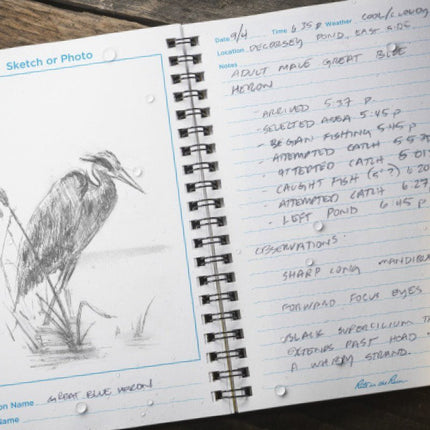 Sketch or Photo
on Name GREAT BLUE HERON
Name
Date 9/4 Time 6 35 P Weather COOL/CLOUDY
Location DECORSEY POND, EAST SIDE
Notes
ADULT MALE GREAT BLUE
HERON
- ARRIVED 5:37 P
- SELECTED AREA 5:45 P
- BEGAN FISHING 5:45 P
- ATTEMPTED CATCH 5 57
- ATTEPTED CATCH 6 01
- CAUGHT FISH (5"?) 6:20
- ATTEMPTED CATCH 6:27
- LEFT POND 6:45 P
OBSERVATIONS:
SHARP LONG MANDIBL
FORWARD FOCUS EYES
BLACK SUPERCILIUM
EXTENDS PAST HEAD
A WARBY STRAND.
Rite in the Rain